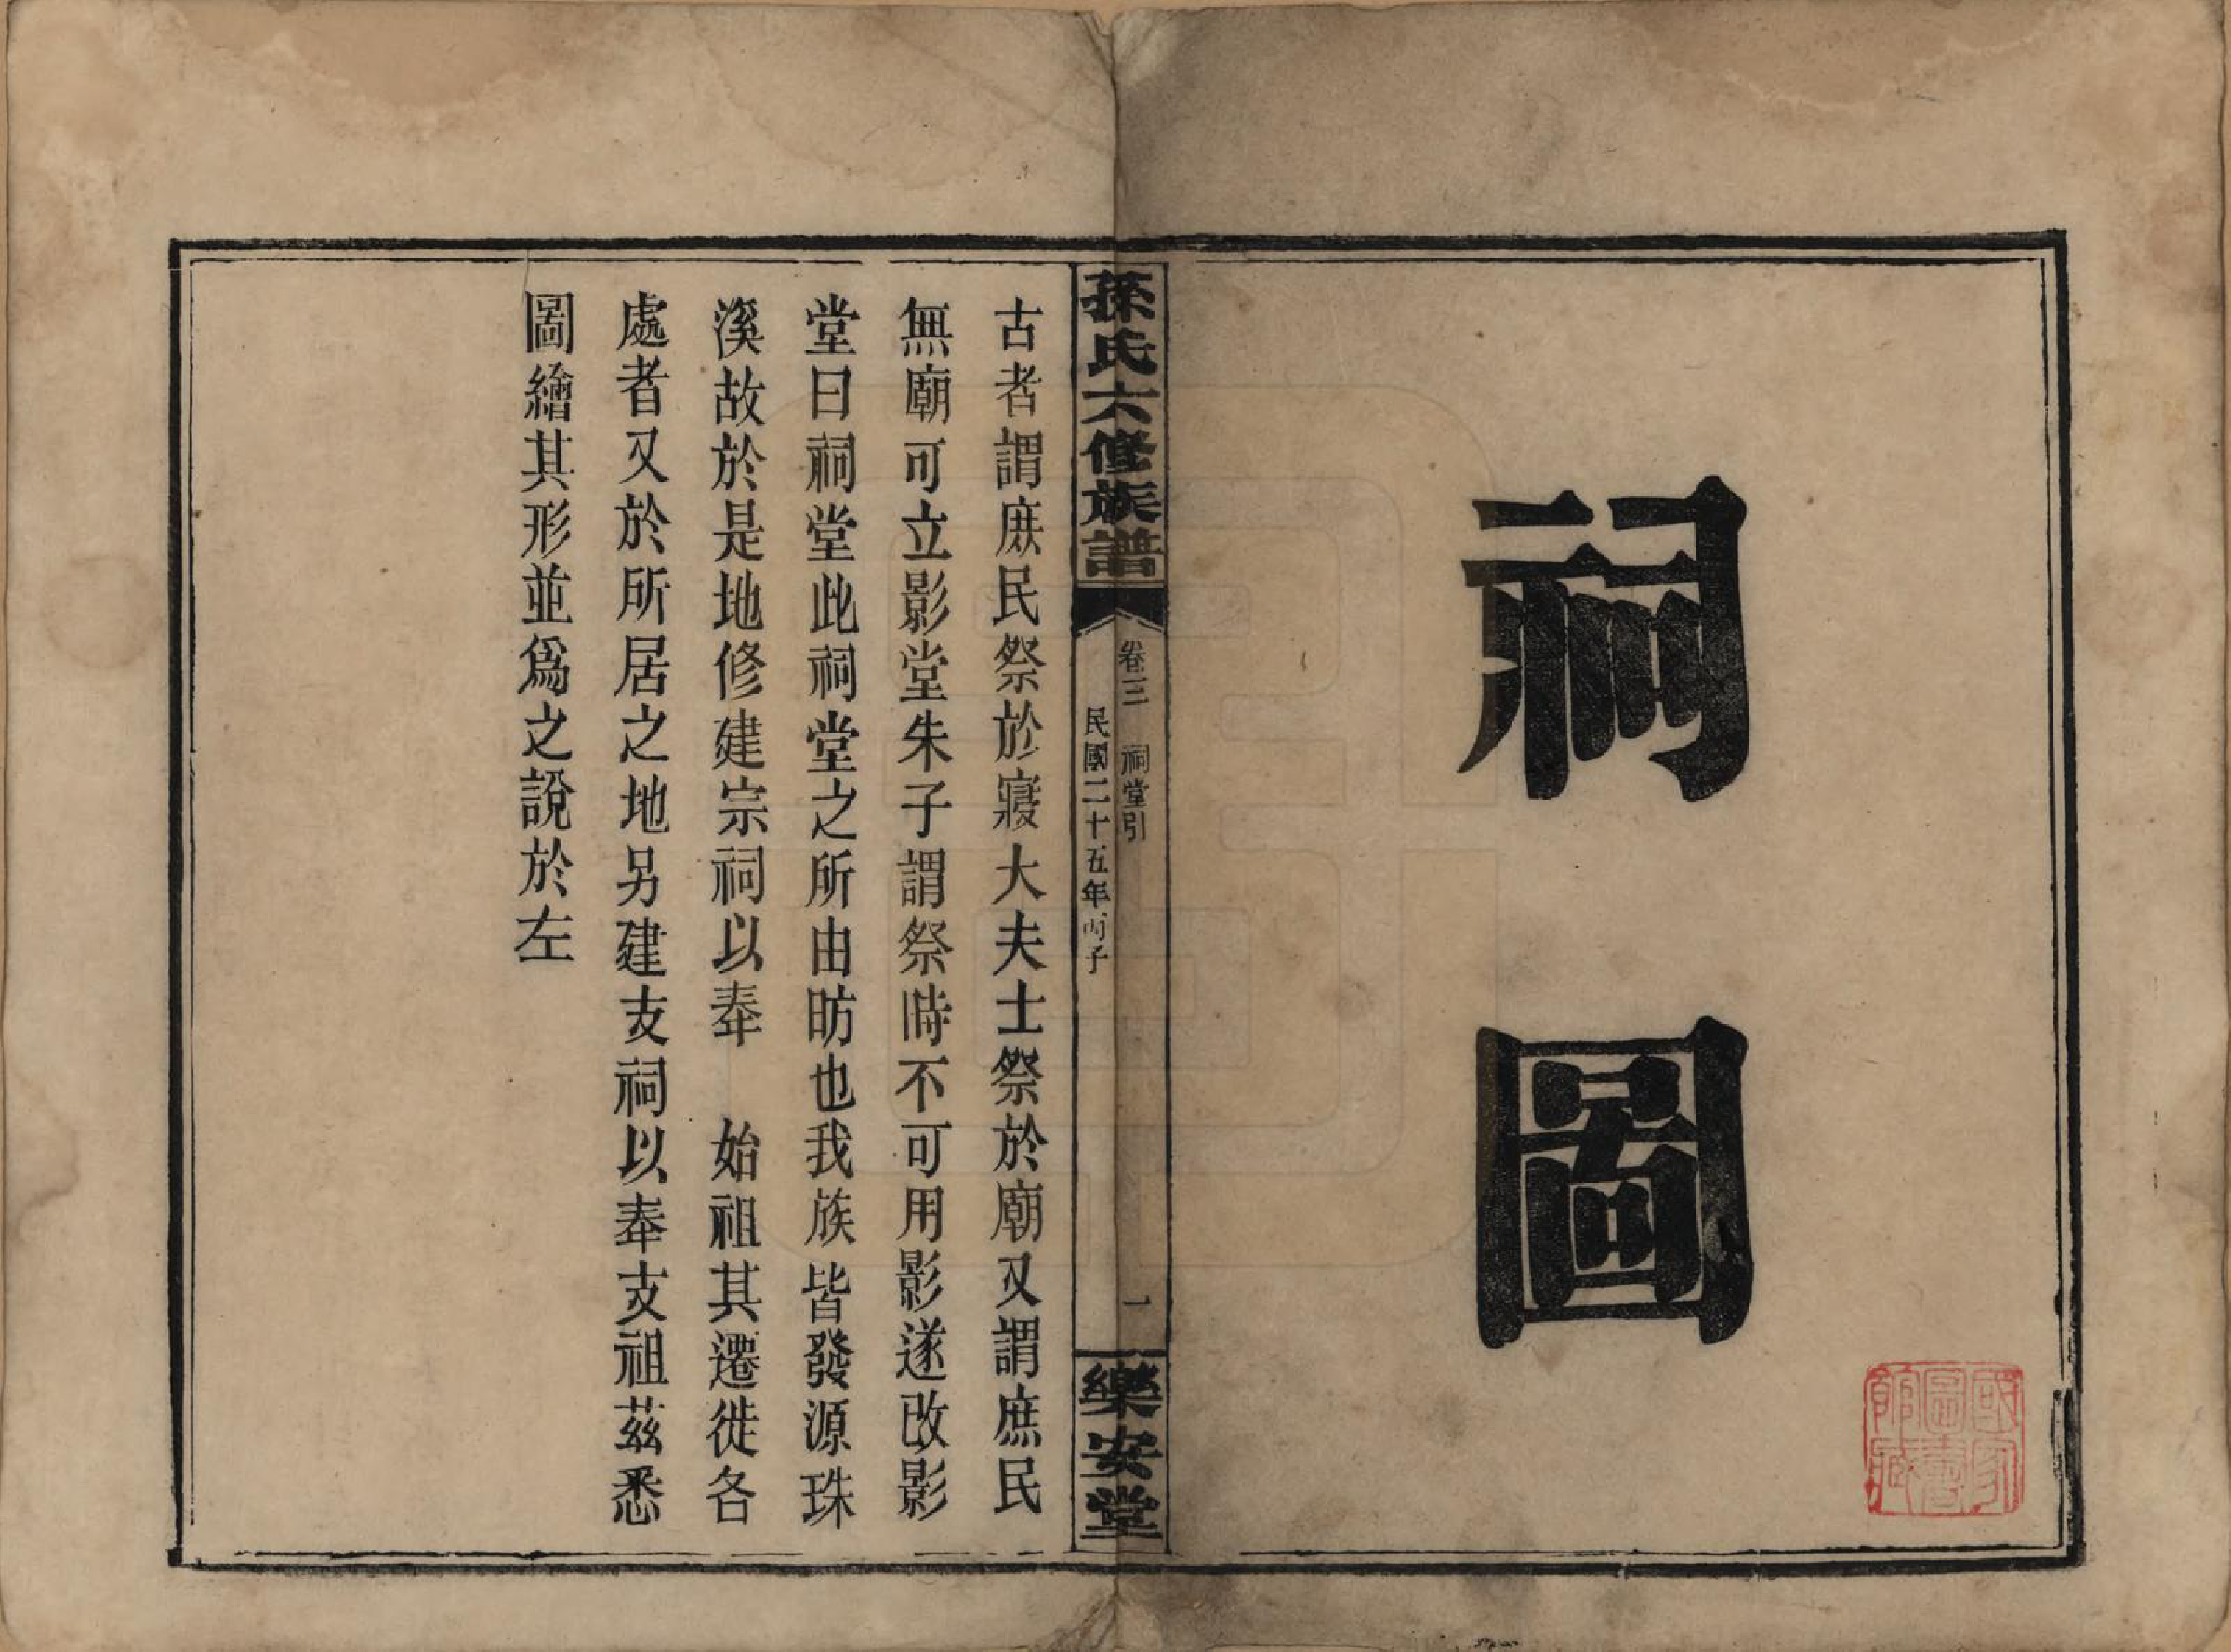 祠圖
國家圖書館藏
孫氏六修族譜
卷三 祠堂引
民國二十五年丙子
一
樂安堂
古者謂庶民祭於寢大夫士祭於廟又謂庶民
無廟可立影堂朱子謂祭時不可用影遂改影
堂曰祠堂此祠堂之所由昉也我族皆發源珠
溪故於是地修建宗祠以奉 始祖其遷徙各
處者又於所居之地另建支祠以奉支祖茲悉
圖繪其形並爲之說於左